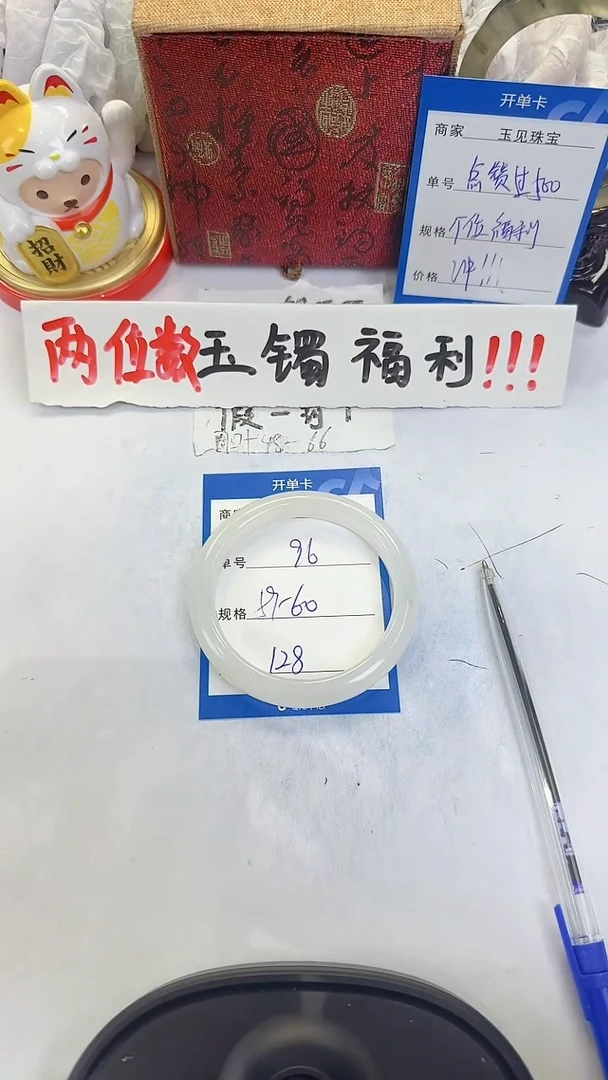 招財
开单卡
商家 玉见珠宝
单号 点赞过500
规格 个位福利
价格 冲!!!
两位数玉镯福利!!!
假一
48-66
开单卡
商
单号 96
规格 59-60
128